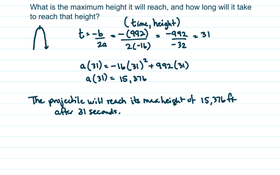 What is the maximum height it will reach, and how long will it take
to reach that height?
(time, height)
t = -b/2a = -(992)/2(-16) = -992/-32 = 31
a(31) = -16(31)² + 992(31)
a(31) = 15,376
The projectile will reach its max height of 15,376 ft
after 31 seconds.